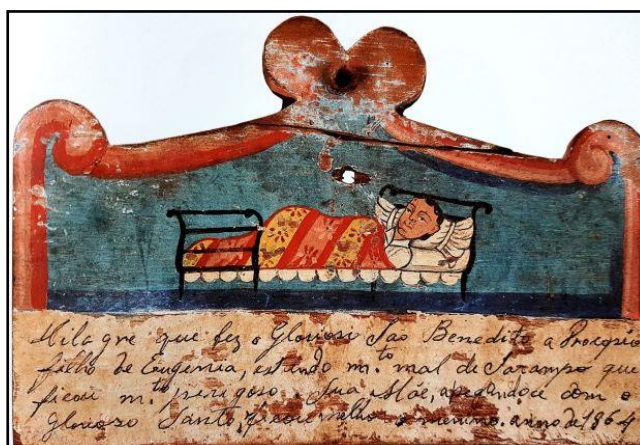 Milagre que fez o Gloriosi Sao Benedito a Procopio
filho de Eugenia, estando m.to mal de Sarampo que
ficou m.to perigoso e Sua Mãe, apegandoce com o
Gloriozo Santo, ficou milhor o menimo. anno de 1864